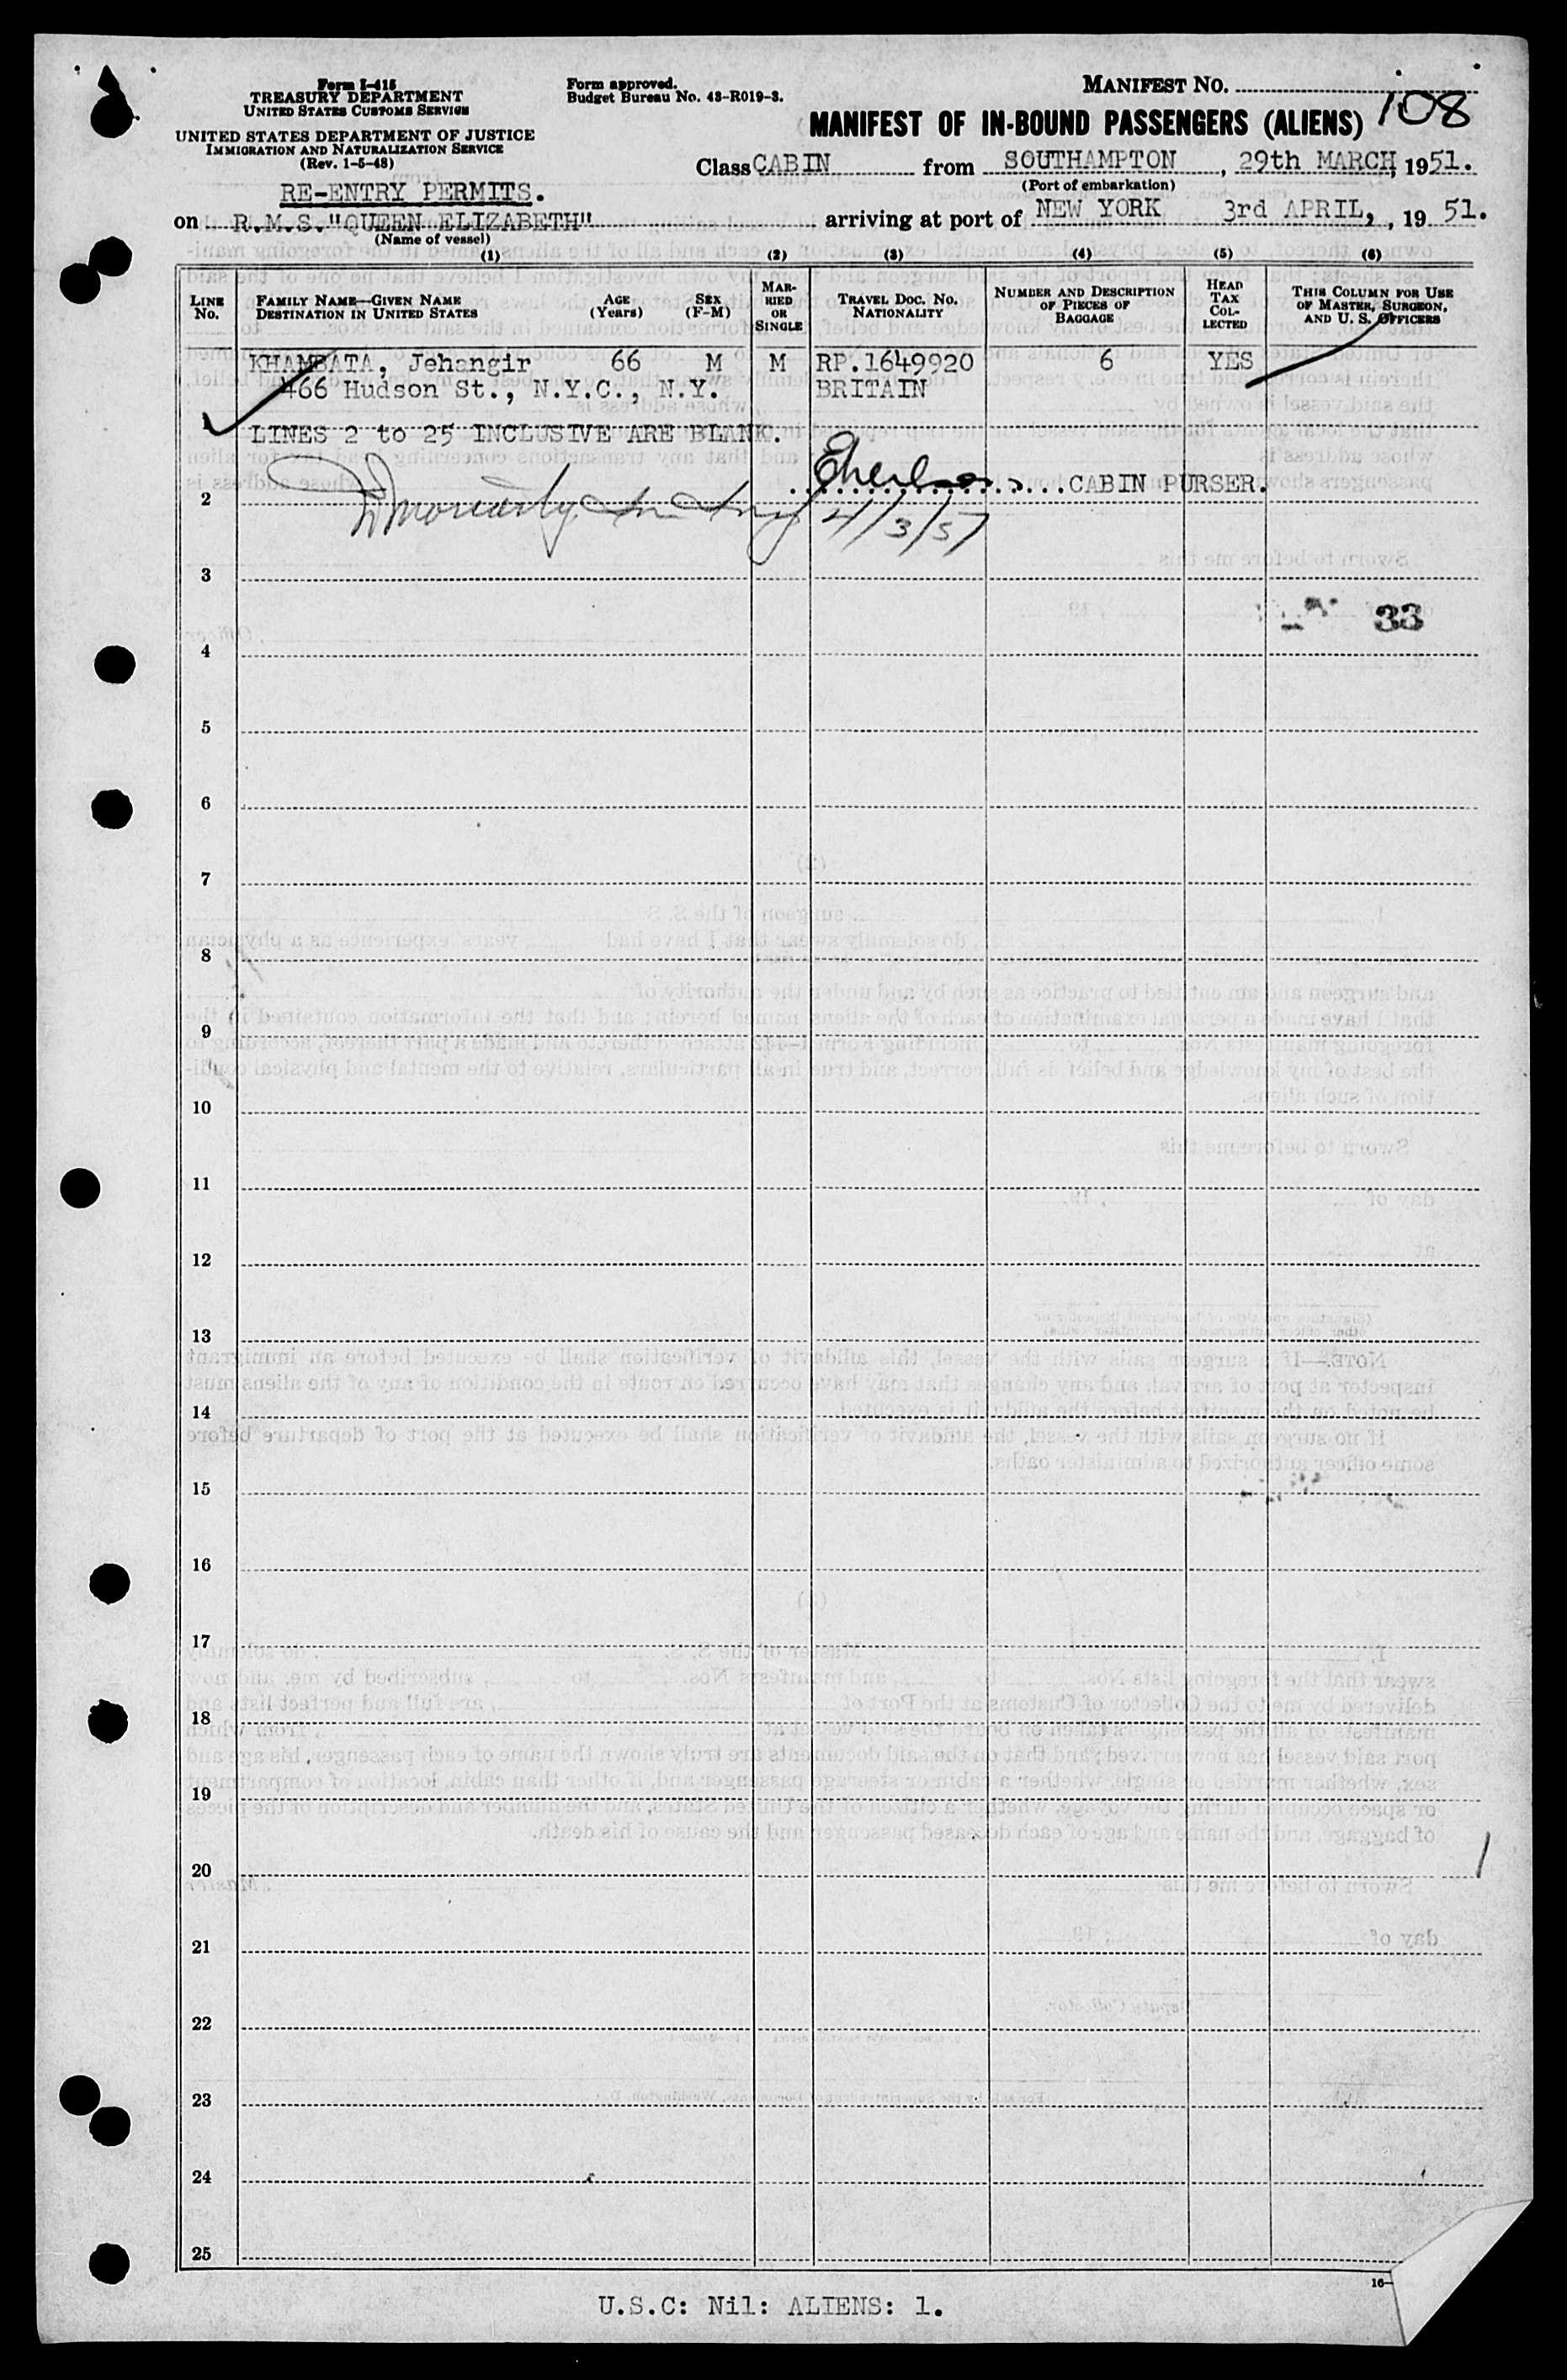 Form I-415
TREASURY DEPARTMENT
UNITED STATES CUSTOMS SERVICE
UNITED STATES DEPARTMENT OF JUSTICE
IMMIGRATION AND NATURALIZATION SERVICE
(Rev. 1-5-48)
Form approved.
Budget Bureau No. 43-R019-3.
MANIFEST NO.
108
MANIFEST OF IN-BOUND PASSENGERS (ALIENS)
Class CABIN from SOUTHAMPTON, 29th MARCH, 1951.
(Port of embarkation)
RE-ENTRY PERMITS.
on R.M.S."QUEEN ELIZABETH" arriving at port of NEW YORK 3rd APRIL, , 19 51.
(Name of vessel)
(1) (2) (3) (4) (5) (6)
LINE No. FAMILY NAME—GIVEN NAME DESTINATION IN UNITED STATES AGE (Years) SEX (F-M) MAR-RIED OR SINGLE TRAVEL DOC. NO. NATIONALITY NUMBER AND DESCRIPTION OF PIECES OF BAGGAGE HEAD TAX COL-LECTED THIS COLUMN FOR USE OF MASTER, SURGEON, AND U. S. OFFICERS
KHAMBATA, Jehangir 66 M M RP.1649920 6 YES
466 Hudson St., N.Y.C., N.Y. BRITAIN
1
LINES 2 to 25 INCLUSIVE ARE BLANK.
CABIN PURSER.
2
4/3/51
3
33
4
5
6
7
8
9
10
11
12
13
14
15
16
17
18
19
20
21
22
23
24
25
16—
U.S.C: Nil: ALIENS: 1.